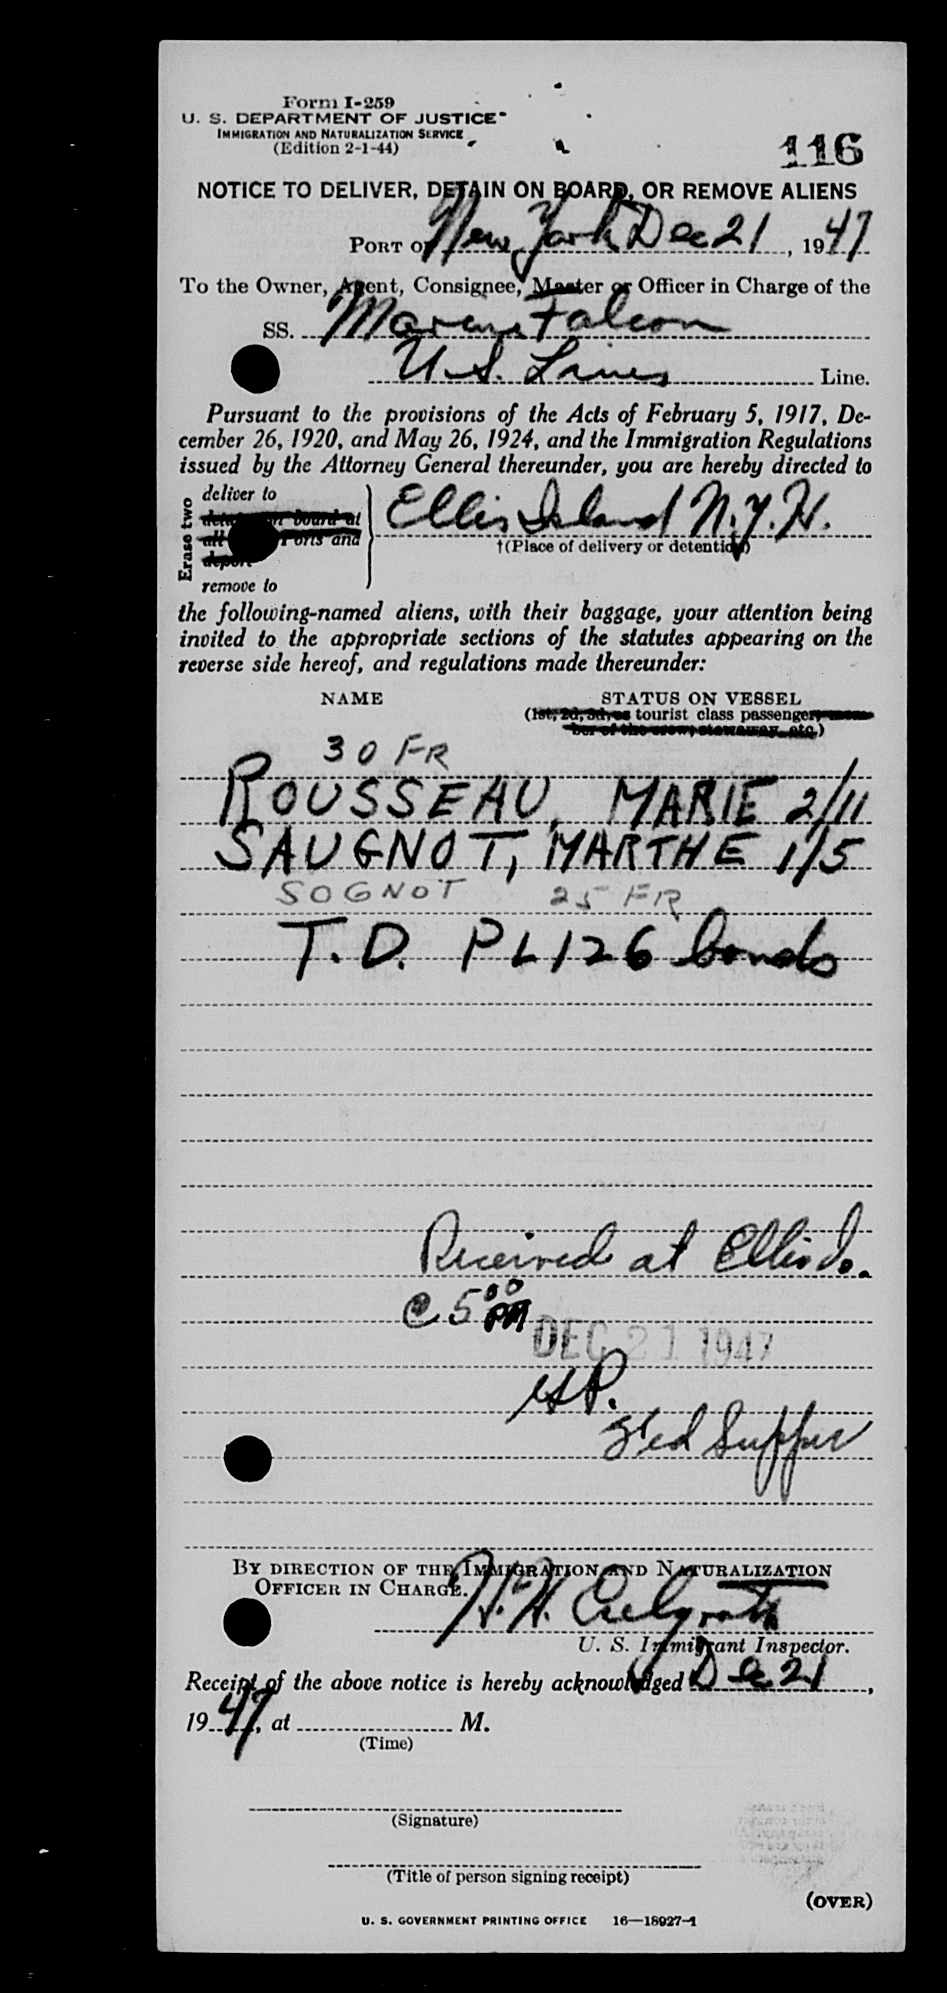 Form I-259
U. S. DEPARTMENT OF JUSTICE
IMMIGRATION AND NATURALIZATION SERVICE
(Edition 2-1-44)
116
NOTICE TO DELIVER, DETAIN ON BOARD, OR REMOVE ALIENS
PORT OF New York Dec 21, 1947
To the Owner, Agent, Consignee, Master or Officer in Charge of the
SS. Marine Falcon
U.S. Lines Line.
Pursuant to the provisions of the Acts of February 5, 1917, De-
cember 26, 1920, and May 26, 1924, and the Immigration Regulations
issued by the Attorney General thereunder, you are hereby directed to
Erase two
deliver to
detain on board at
all Ports and
deport
remove to
Ellis Island N.Y.H.
†(Place of delivery or detention)
the following-named aliens, with their baggage, your attention being
invited to the appropriate sections of the statutes appearing on the
reverse side hereof, and regulations made thereunder:
NAME STATUS ON VESSEL
(1st, 2d, 3d, or tourist class passenger, mem-
ber of the crew, stowaway, etc.)
30 FR
ROUSSEAU, MARIE 2/11
SAUGNOT, MARTHE 1/5
SOGNOT 25 FR
T.D. PL 126 bonds
Received at Ellis Is.
@ 5 00 PM
DEC 21 1947
BY DIRECTION OF THE IMMIGRATION AND NATURALIZATION
OFFICER IN CHARGE.
H. H.
U. S. Immigrant Inspector.
Receipt of the above notice is hereby acknowledged Dec 21,
1947, at M.
(Time)
(Signature)
(Title of person signing receipt)
(OVER)
U. S. GOVERNMENT PRINTING OFFICE 16—18927-1